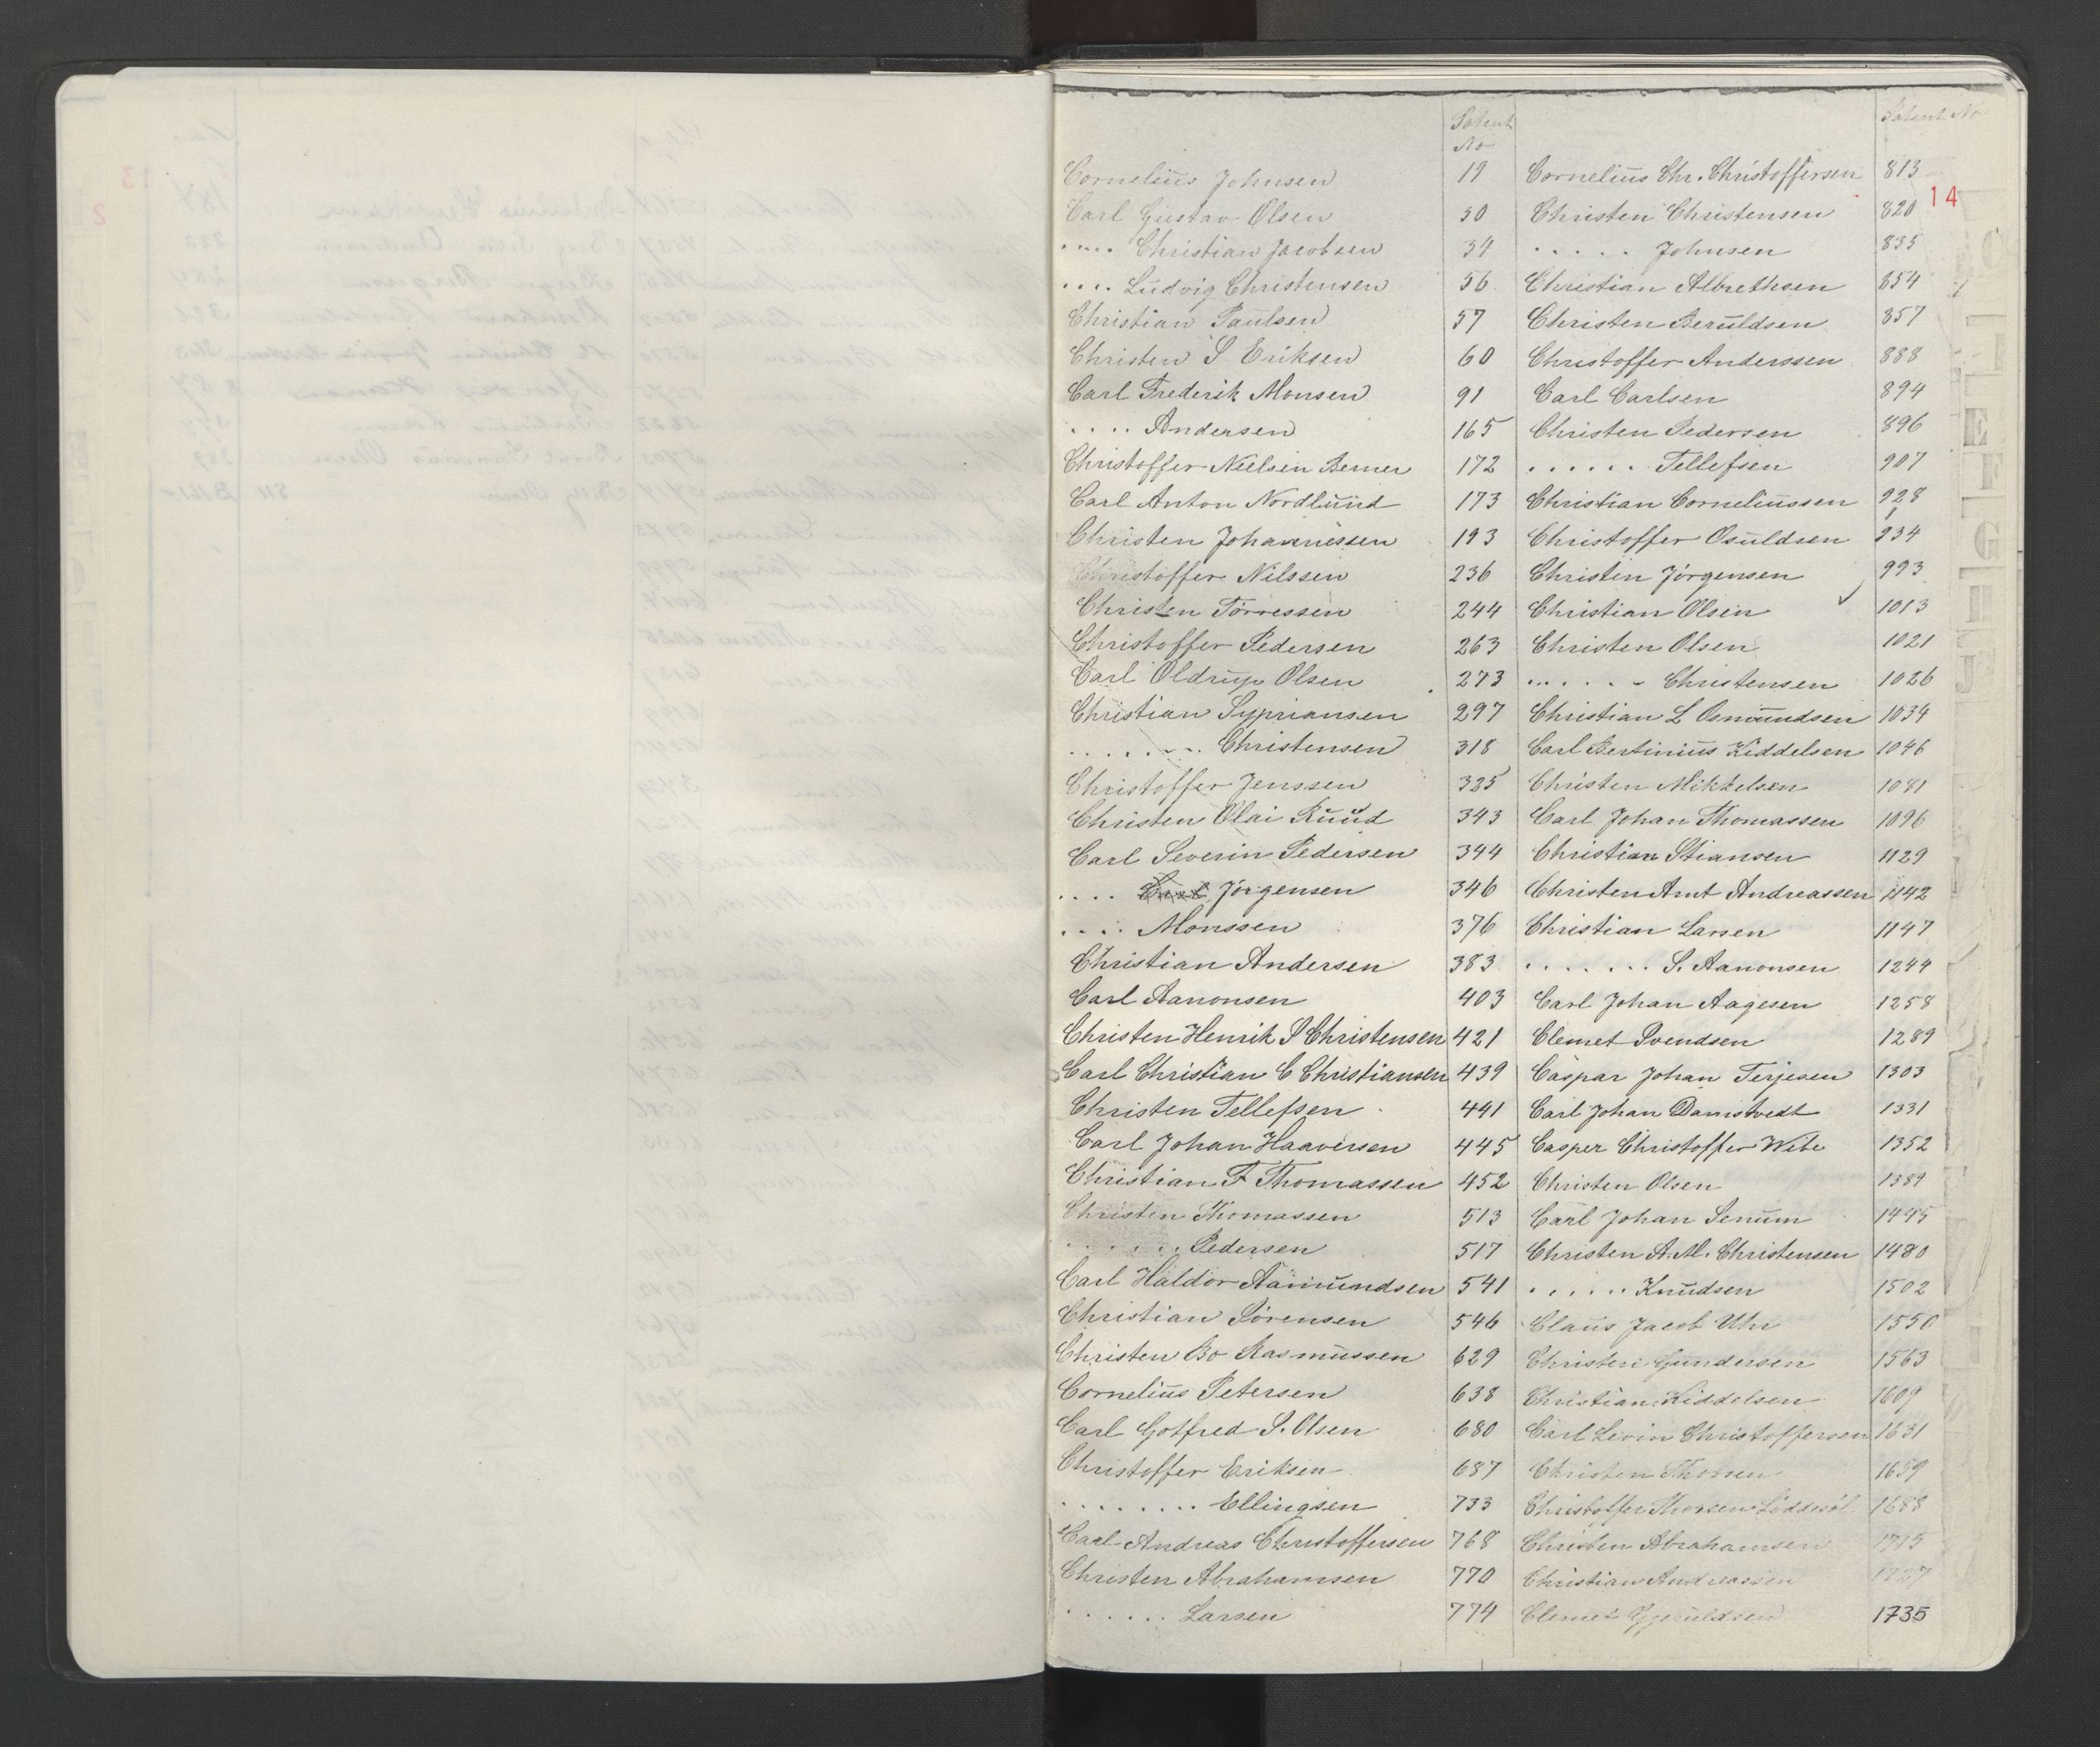 Patent No
Cornelius Johnsen 19
Carl Gustav Olsen 30
..... Christian Jacobsen 34
.... Ludvig Christensen 56
Christian Paulsen 57
Christen S Eriksen 60
Carl Frederik Monsen 91
.... Andersen 165
Christoffer Nielsen Berner 172
Carl Anton Nordlund 173
Christen Johannessen 193
Christoffer Nilssen 236
Christen Torressen 244
Christoffer Pedersen 263
Carl Oldrup Olsen 273
Christian Sypriansen 297
....... Christensen 318
Christoffer Jenssen 325
Christen Olai Ruud 343
Carl Severin Pedersen 344
.... Jörgensen 346
.... Monssen 376
Christian Andersen 383
Carl Aanonsen 403
Christen Henrik S Christensen 421
Carl Christian C Christiansen 439
Christen Tellefsen 441
Carl Johan Haaversen 445
Christian F Thomassen 452
Christen Thomassen 513
...... Pedersen 517
Carl Haldor Aamundsen 541
Christian Sörensen 546
Christen Bo Rasmussen 629
Cornelius Petersen 638
Carl Gotfred S. Olsen 680
Christoffer Eriksen 687
........ Ellingsen 733
Carl Andreas Christoffersen 768
Christen Abrahamsen 770
...... Larsen 774
Patent No
Cornelius Chr. Christoffersen 813
14
Christen Christensen 820
..... Johnsen 835
Christian Albrethsen 854
Christen Beruldsen 857
Christoffer Anderssen 888
Carl Carlsen 894
Christen Pedersen 896
...... Tellefsen 907
Christian Corneliussen 928
Christoffer Osuldsen 934
Christen Jörgensen 993
Christian Olsen 1013
Christen Olsen 1021
...... Christensen 1026
Christian L Osmundsen 1034
Carl Bertinius Kiddelsen 1046
Christen Mikkelsen 1081
Carl Johan Thomassen 1096
Christian Stiansen 1129
Christen Arnt Andreassen 1142
Christian Larsen 1147
....... S. Aanonsen 1244
Carl Johan Aagesen 1258
Clemet Svendsen 1289
Caspar Johan Terjesen 1303
Carl Johan Damstvedt 1331
Casper Christoffer Wibe 1352
Christen Olsen 1389
Carl Johan Senum 1445
Christen A. M. Christensen 1480
...... Knudsen 1502
Claus Jacob Uhr 1550
Christen Gundersen 1563
Christian Kiddelsen 1609
Carl Levin Christoffersen 1631
Christen Thorsen 1659
Christoffer Thorsen 1688
Christen Abrahamsen 1715
Christian Andreassen 1727
Clemet Gjeruldsen 1735